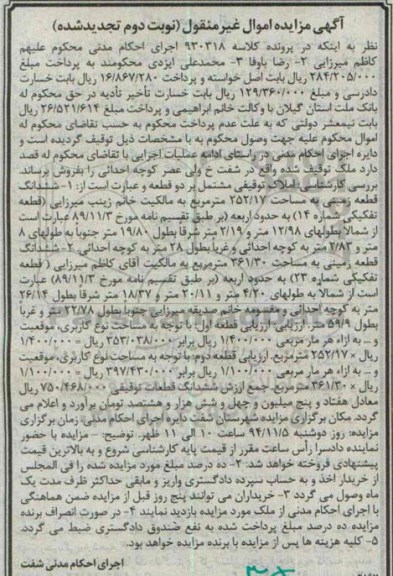 آگهی مزایده اموال غیرمنقول (نوبت دوم تجدیدشده)
نظر به اینکه در پرونده کلاسه ۹۳۰۳۱۸ اجرای احکام مدنی محکوم علیهم
کاظم میرزایی ۲- رضا باوفا ۳- محمدعلی ایزدی محکومند به پرداخت مبلغ
۲۸۴/۲۰۵/۰۰۰ ریال بابت اصل خواسته و پرداخت ۱۶/۸۶۷/۲۸۰ ریال بابت خسارت
دادرسی و مبلغ ۱۲۹/۳۶۰/۰۰۰ ریال بابت خسارت تأخیر تأدیه در حق محکوم له
بانک ملت استان گیلان با وکالت خانم ابراهیمی و پرداخت مبلغ ۲۶/۵۲۱/۶۱۴ ریال
بابت نیمعشر دولتی که به علت عدم پرداخت محکوم به حسب تقاضای محکوم له
اموال محکوم علیه جهت وصول محکوم به با مشخصات ذیل توقیف گردیده است و
دایره اجرای احکام مدنی در راستای ادامه عملیات اجرایی با تقاضای محکوم له قصد
دارد ملک توقیف شده واقع در شفت خ ولی عصر کوچه احداثی را بفروش برساند.
بررسی کارشناسی املاک توقیفی مشتمل بر دو قطعه و عبارت است از: ۱- ششدانگ
قطعه زمینی به مساحت ۲۵۲/۱۷ مترمربع به مالکیت خانم زینب میرزایی (قطعه
تفکیکی شماره ۱۴) به حدود اربعه (بر طبق تقسیم نامه مورخ ۸۹/۱۱/۳) عبارت است
از شمالاً بطولهای ۱۲/۹۸ متر و ۲/۱۹ متر شرقا بطول ۱۹/۸۰ متر جنوباً به طولهای ۸
متر و ۲/۸۳ متر به کوچه احداثی و غرباً بطول ۲۸ متر به کوچه احداثی ۲- ششدانگ
قطعه زمینی به مساحت ۳۶۱/۳۰ مترمربع به مالکیت آقای کاظم میرزایی (قطعه
تفکیکی شماره ۲۳) به حدود اربعه (بر طبق تقسیم نامه مورخ ۸۹/۱۱/۳) عبارت
است از شمالاً به طولهای ۴/۲۰ متر و ۲۰/۱۱ متر و ۱۸/۳۷ متر شرقا بطول ۲۶/۱۴
متر به کوچه احداثی و مفسومه خانم صدیقه میرزایی جنوباً بطول ۲۲/۷۸ متر و غرباً
بطول ۵۹/۹ متر. ارزیابی: ارزیابی قطعه اول: با توجه به مساحت نوع کاربری، موقعیت
و … به ازاء هر مار مربعی ۱/۴۰۰/۰۰۰ ریال برابر ۳۵۳/۰۳۸/۰۰۰ ریال = ۱/۴۰۰/۰۰۰
ریال × ۲۵۲/۱۷ مترمربع. ارزیابی قطعه دوم: با توجه به مساحت نوع کاربری، موقعیت
و … به ازاء هر مار مربعی ۱/۱۰۰/۰۰۰ ریال برابر ۳۹۷/۴۳۰/۰۰۰ ریال = ۱/۱۰۰/۰۰۰
ریال × ۳۶۱/۳۰ مترمربع. جمع ارزش ششدانگ قطعات توقیفی ۷۵۰/۴۶۸/۰۰۰ ریال
معادل هفتاد و پنج میلیون و چهل و شش هزار و هشتصد تومان برآورد و اعلام می
گردد. مکان برگزاری مزایده شهرستان شفت دایره اجرای احکام مدنی. زمان برگزاری
مزایده: روز دوشنبه ۹۴/۱۱/۵ ساعت ۱۰ الی ۱۱ ظهر. توضیح: - مزایده با حضور
نماینده دادسرا رأس ساعت مقرر از قیمت پایه کارشناسی شروع و به بالاترین قیمت
پیشنهادی فروخته خواهد شد. ۲- ده درصد مبلغ مورد مزایده شده را فی المجلس
از خریدار اخذ و به حساب سپرده دادگستری واریز و مابقی حداکثر ظرف مدت یک
ماه وصول می گردد ۳- خریداران می توانند پنج روز قبل از مزایده ضمن هماهنگی
با اجرای احکام مدنی از ملک مورد مزایده بازدید نمایند ۴- در صورت انصراف برنده
مزایده ده درصد مبلغ پرداخت شده به نفع صندوق دادگستری ضبط می گردد.
۵- کلیه هزینه ها پس از مزایده با برنده مزایده خواهد بود.
اجرای احکام مدنی شفت